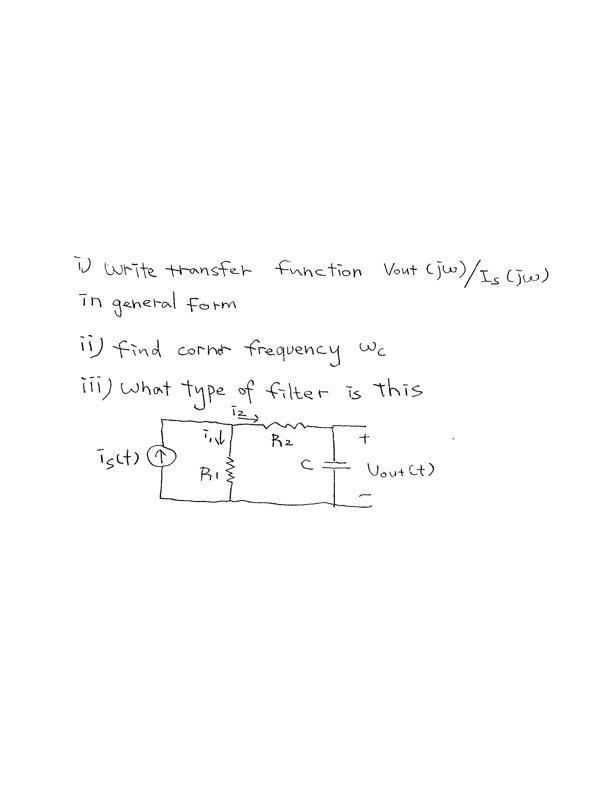 i) write transfer function Vout (jω)/Is (jω)
in general form
ii) find corner frequency ωc
iii) what type of filter is this
i2
i1
R2
+
is(t)
R1
C
Vout(t)
−